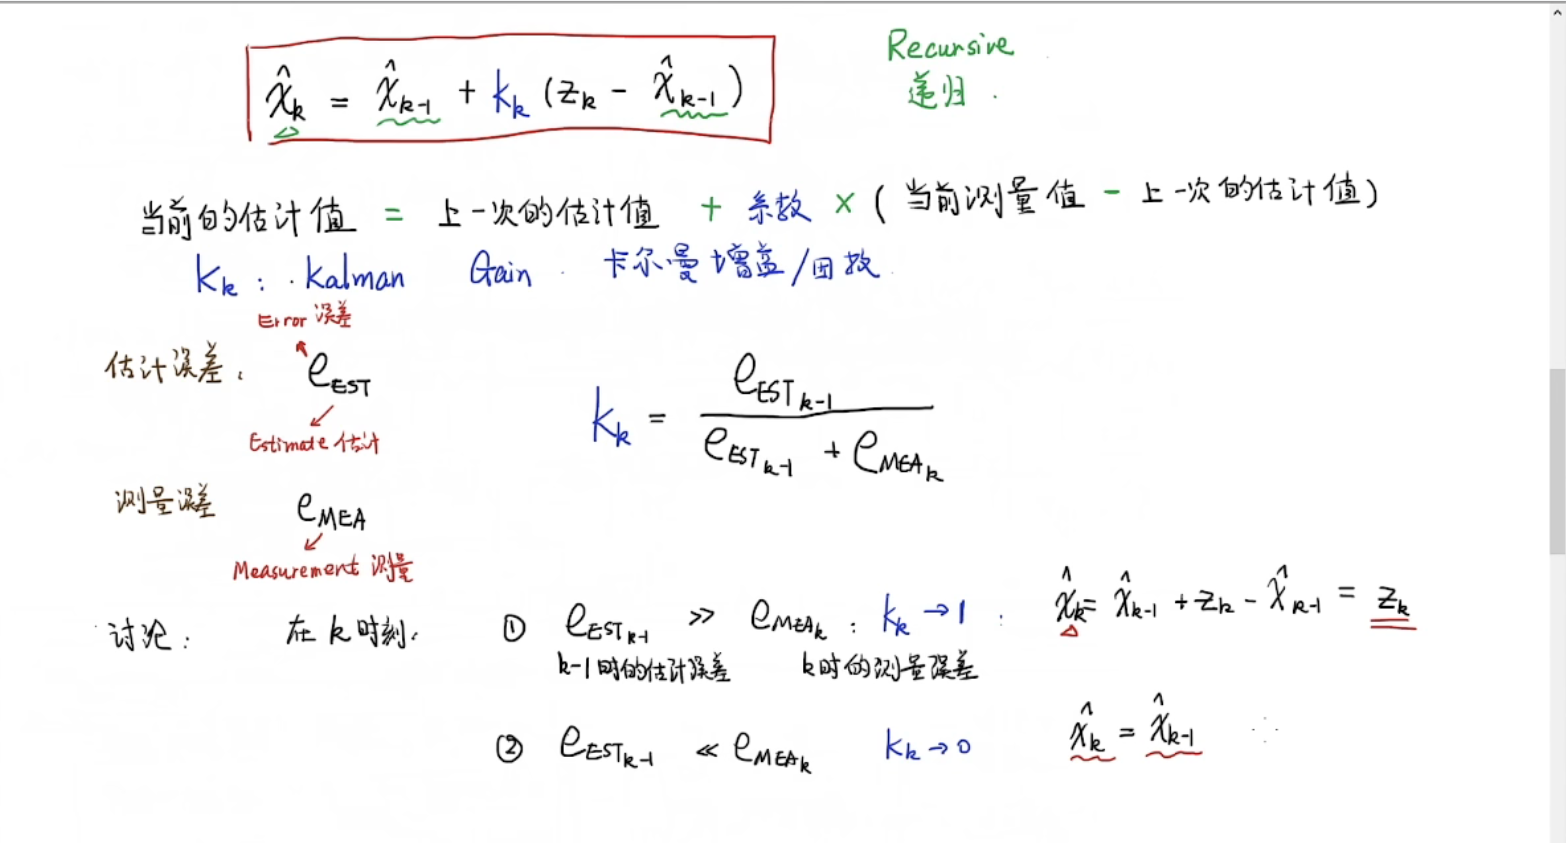 x̂ₖ = x̂ₖ₋₁ + Kₖ (zₖ - x̂ₖ₋₁)
Recursive
递归.
当前的估计值 = 上一次的估计值 + 系数 × (当前测量值 - 上一次的估计值)
Kₖ : Kalman Gain 卡尔曼增益/因数
Error 误差
估计误差: e_EST
Estimate 估计
Kₖ = e_ESTₖ₋₁ / (e_ESTₖ₋₁ + e_MEAₖ)
测量误差 e_MEA
Measurement 测量
讨论: 在k时刻. ① e_ESTₖ₋₁ ≫ e_MEAₖ : Kₖ → 1 : x̂ₖ = x̂ₖ₋₁ + zₖ - x̂ₖ₋₁ = zₖ
k-1时的估计误差 k时的测量误差
② e_ESTₖ₋₁ ≪ e_MEAₖ Kₖ → 0 x̂ₖ = x̂ₖ₋₁